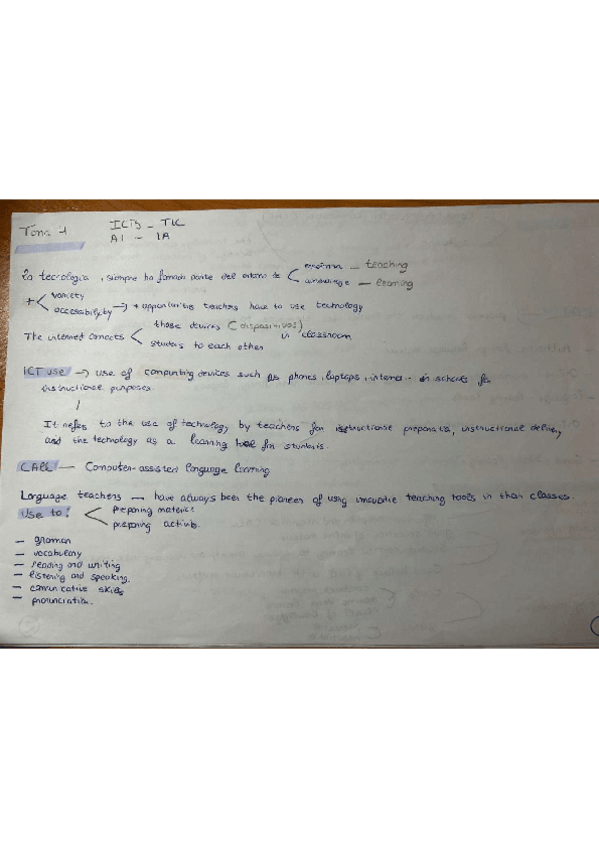 Tema 1
ICTs - TIC
AI - IA
La tecnología, siempre ha formado parte del entorno de
enseñanza - teaching
- learning
+ variety
accessability -> + oportunities teachers have to use technology
The internet connects
those devices (dispositivos)
students to each other
in classroom
ICT use -> use of computing devices such as phones, laptops, internet in schools for
instructional purposes.
It refers to the use of technology by teachers for instructional preparation, instructional delivery,
and the technology as a learning tool for students.
CALL - Computer-assisted language learning
Language teachers - have always been the pioneers of using innovative teaching tools in their classes.
Use to:
preparing material
preparing activities.
- grammar
- vocabulary
- reading and writing
- listening and speaking.
- comunicative skills
- pronunciation.